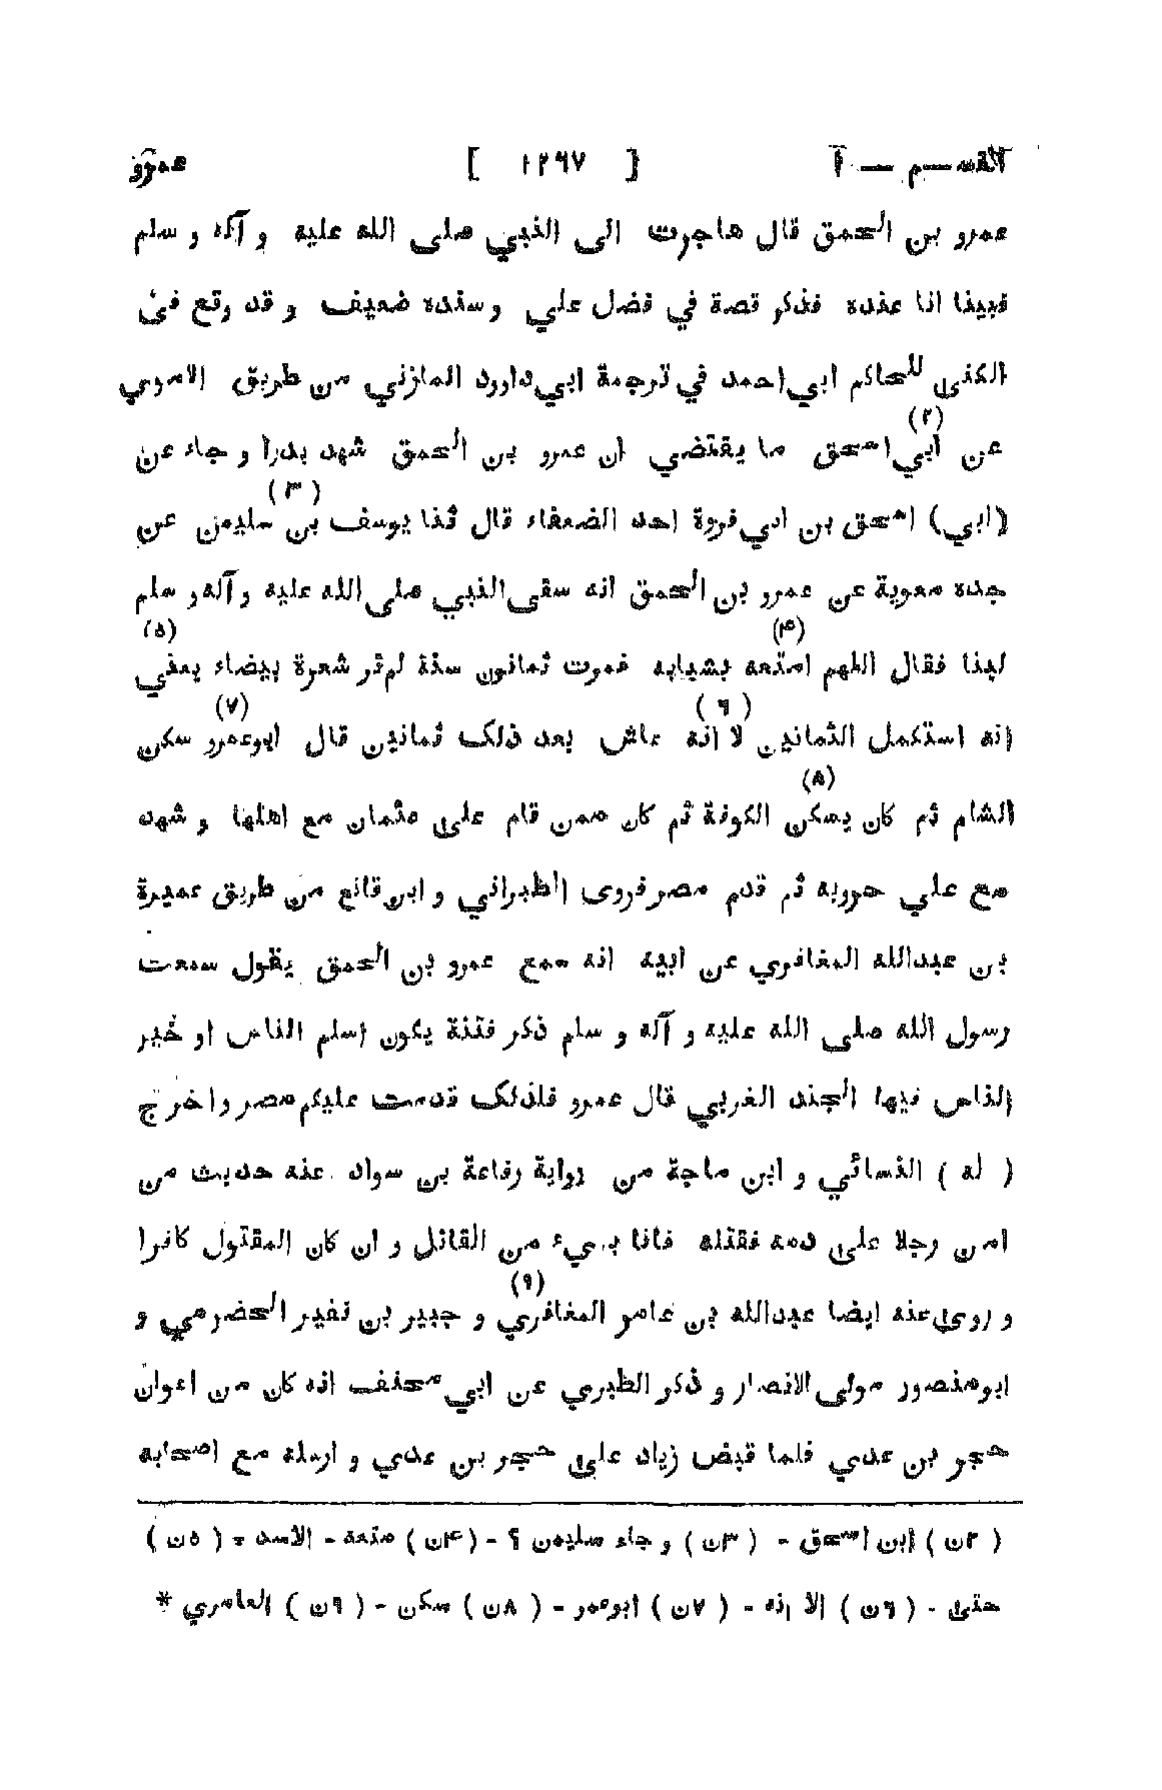 القسم — ١ [ ١٢٦٧ ] عمرو
عمرو بن الحمق قال هاجرت الى النبي صلى الله عليه و آله و سلم
فبينا انا عنده فذكر قصة في فضل علي و سنده ضعيف و قد وقع في
الكنى للحاكم ابي احمد في ترجمة ابي داوود المازني من طريق الاموي
عن ابي اسحق (٢) ما يقتضي ان عمرو بن الحمق شهد بدرا و جاء عن
(ابي) اسحق بن ابي فروة احد الضعفاء قال ثنا يوسف بن (٣) سليمن عن
جده معوية عن عمرو بن الحمق انه سقى النبي صلى الله عليه و آله و سلم
لبنا فقال اللهم امتعه (۴) بشبابه فمرت ثمانون سنة لم تر شعرة بيضاء يعني (٥)
انه استكمل الثمانين لا انه (٦) عاش بعد ذلك ثمانين قال ابوعمرو (٧) سكن
الشام ثم كان يسكن (٨) الكوفة ثم كان ممن قام على عثمان مع اهلها و شهد
مع علي حروبه ثم قدم مصر فروى الطبراني و ابن قانع من طريق عميرة
بن عبدالله المغافري عن ابيه انه سمع عمرو بن الحمق يقول سمعت
رسول الله صلى الله عليه و آله و سلم ذكر فتنة يكون اسلم الناس او خير
الناس فيها الجند الغربي قال عمرو فلذلك قدمت عليكم مصر و اخرج
( له ) النسائي و ابن ماجة من رواية رفاعة بن سواد عنه حديث من
امن رجلا على دمه فقتله فانا بريء من القاتل و ان كان المقتول كافرا
و روى عنه ايضا عبدالله بن عامر المغافري (٩) و جبير بن نفير الحضرمي و
ابو منصور مولى الانصار و ذكر الطبري عن ابي مخنف انه كان من اعوان
حجر بن عدي فلما قبض زياد على حجر بن عدي و ارسله مع اصحابه
( ٢ن ) ابن اسحق - ( ٣ن ) و جاء سليمن ؟ - ( ۴ن ) متعه - الاسد - ( ٥ن )
حتى - ( ٦ن ) الا انه - ( ٧ن ) ابوعمر - ( ٨ن ) سكن - ( ٩ن ) العامري *